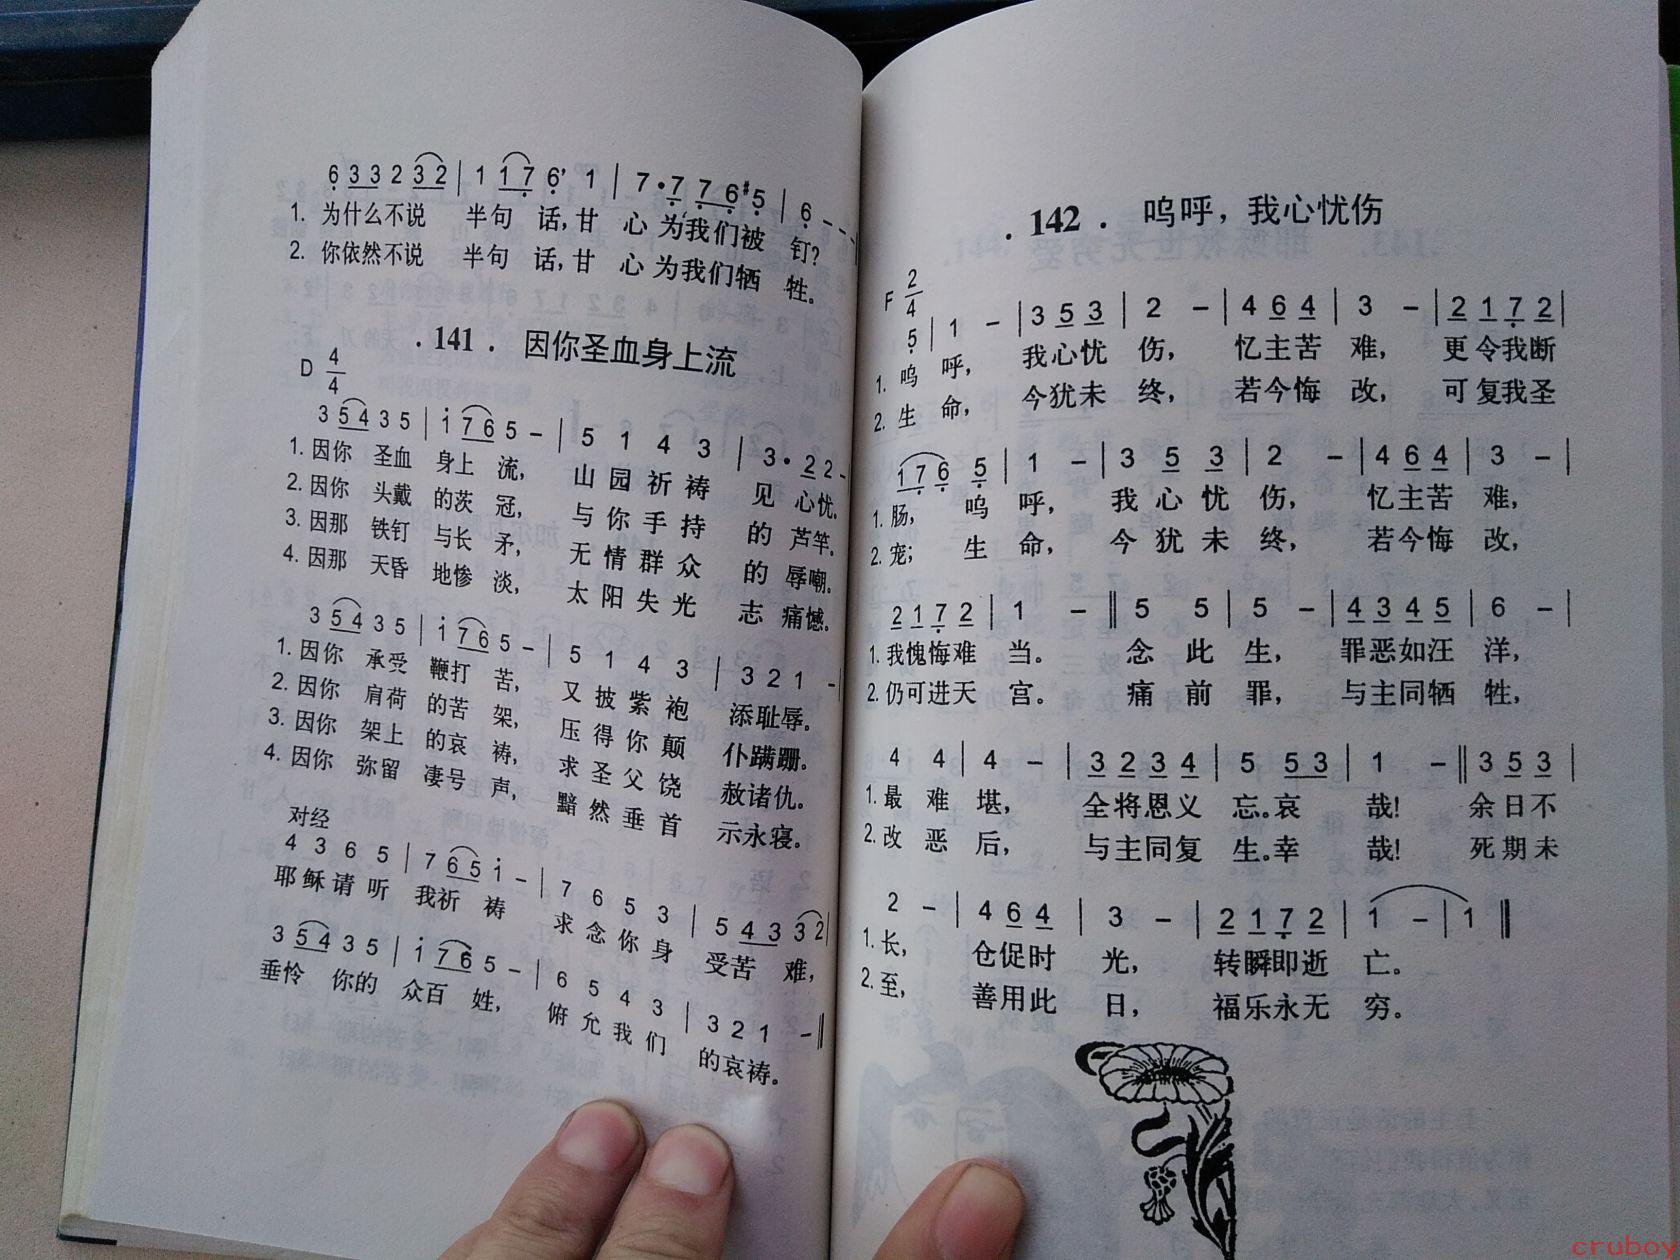 6 3 3 2 3 2 | 1 1 7 6 ’ 1 | 7 • 7 7 6 #5 | 6 - - - ‖
1. 为什么不说 半句 话,甘 心 为我们被 钉?
2. 你依然不说 半句 话,甘 心 为我们牺 牲。
. 141 . 因你圣血身上流
D 4/4
3 5 4 3 5 | i 7 6 5 - | 5 1 4 3 | 3 • 2 2 -
1. 因你 圣血 身上 流, 山 园 祈 祷 见 心忧。
2. 因你 头戴 的茨 冠, 与 你 手 持 的 芦竿。
3. 因那 铁钉 与长 矛, 无 情 群 众 的 辱嘲。
4. 因那 天昏 地惨 淡, 太 阳 失 光 志 痛憾。
3 5 4 3 5 | i 7 6 5 - | 5 1 4 3 | 3 2 1 - |
1. 因你 承受 鞭打 苦, 又 披 紫 袍 添耻辱。
2. 因你 肩荷 的苦 架, 压 得 你 颠 仆蹒跚。
3. 因你 架上 的哀 祷, 求 圣 父 饶 赦诸仇。
4. 因你 弥留 凄号 声, 黯 然 垂 首 示永寝。
对经
4 3 6 5 | 7 6 5 i - | 7 6 5 3 | 5 4 3 3 2 |
耶 稣 请 听 我祈 祷 求 念 你 身 受苦 难,
3 5 4 3 5 | i 7 6 5 - | 6 5 4 3 | 3 2 1 - ‖
垂怜 你的 众百 姓, 俯 允 我 们 的哀祷。
. 142 . 呜呼,我心忧伤
F 2/4
5 | 1 - | 3 5 3 | 2 - | 4 6 4 | 3 - | 2 1 7 2 |
1. 呜 呼, 我心忧 伤, 忆主苦 难, 更令我断
2. 生 命, 今犹未 终, 若今悔 改, 可复我圣
1 7 6 5 | 1 - | 3 5 3 | 2 - | 4 6 4 | 3 - |
1. 肠, 呜 呼, 我 心 忧 伤, 忆主苦 难,
2. 宠; 生 命, 今 犹 未 终, 若今悔 改,
2 1 7 2 | 1 - ‖ 5 5 | 5 - | 4 3 4 5 | 6 - |
1. 我愧悔难 当。 念 此 生, 罪恶如汪 洋,
2. 仍可进天 宫。 痛 前 罪, 与主同牺 牲,
4 4 | 4 - | 3 2 3 4 | 5 5 3 | 1 - ‖ 3 5 3 |
1. 最 难 堪, 全将恩义 忘。哀 哉! 余日不
2. 改 恶 后, 与主同复 生。幸 哉! 死期未
2 - | 4 6 4 | 3 - | 2 1 7 2 | 1 - | 1 ‖
1. 长, 仓促时 光, 转瞬即逝 亡。
2. 至, 善用此 日, 福乐永无 穷。
cruboy